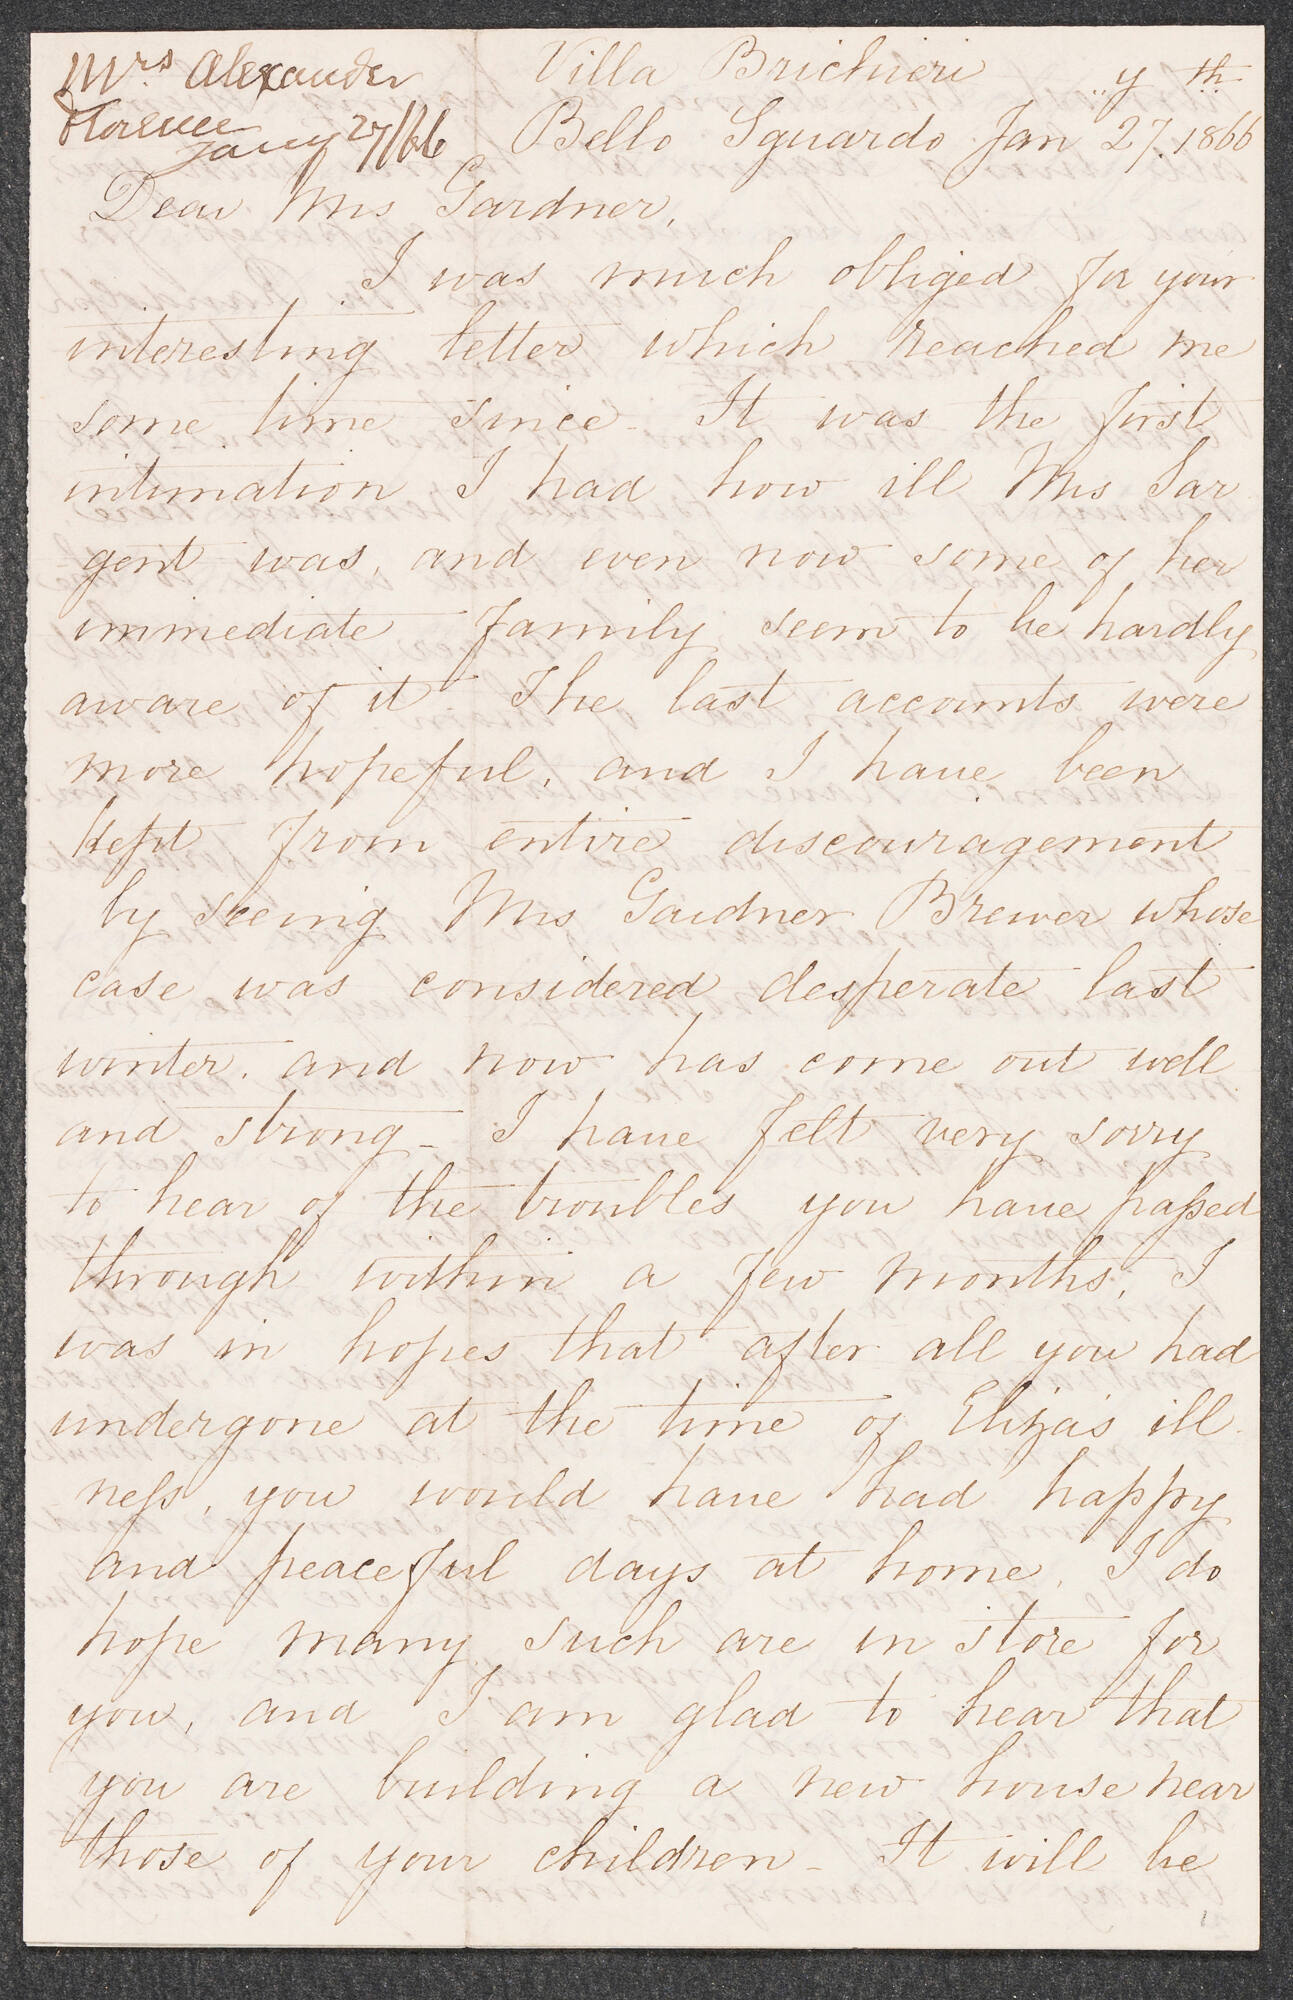 Mrs Alexander
Florence
Jany 27/66
Villa Brichieri
Bello Sguardo Jany 27th. 1866
Dear Mrs Gardner,
I was much obliged for your
interesting letter which reached me
some time since - It was the first
intimation I had how ill Mrs Sar
gent was, and even now some of her
immediate family seem to be hardly
aware of it - The last accounts were
more hopeful, and I have been
kept from entire discouragement
by seeing Mrs Gardner Brewer whose
case was considered desperate last
winter, and now has come out well
and strong - I have felt very sorry
to hear of the troubles you have passed
through within a few months; I
was in hopes that after all you had
undergone at the time of Eliza's ill
ness, you would have had happy
and peaceful days at home. I do
hope many such are in store for
you, and I am glad to hear that
you are building a new house near
those of your children - It will be
1